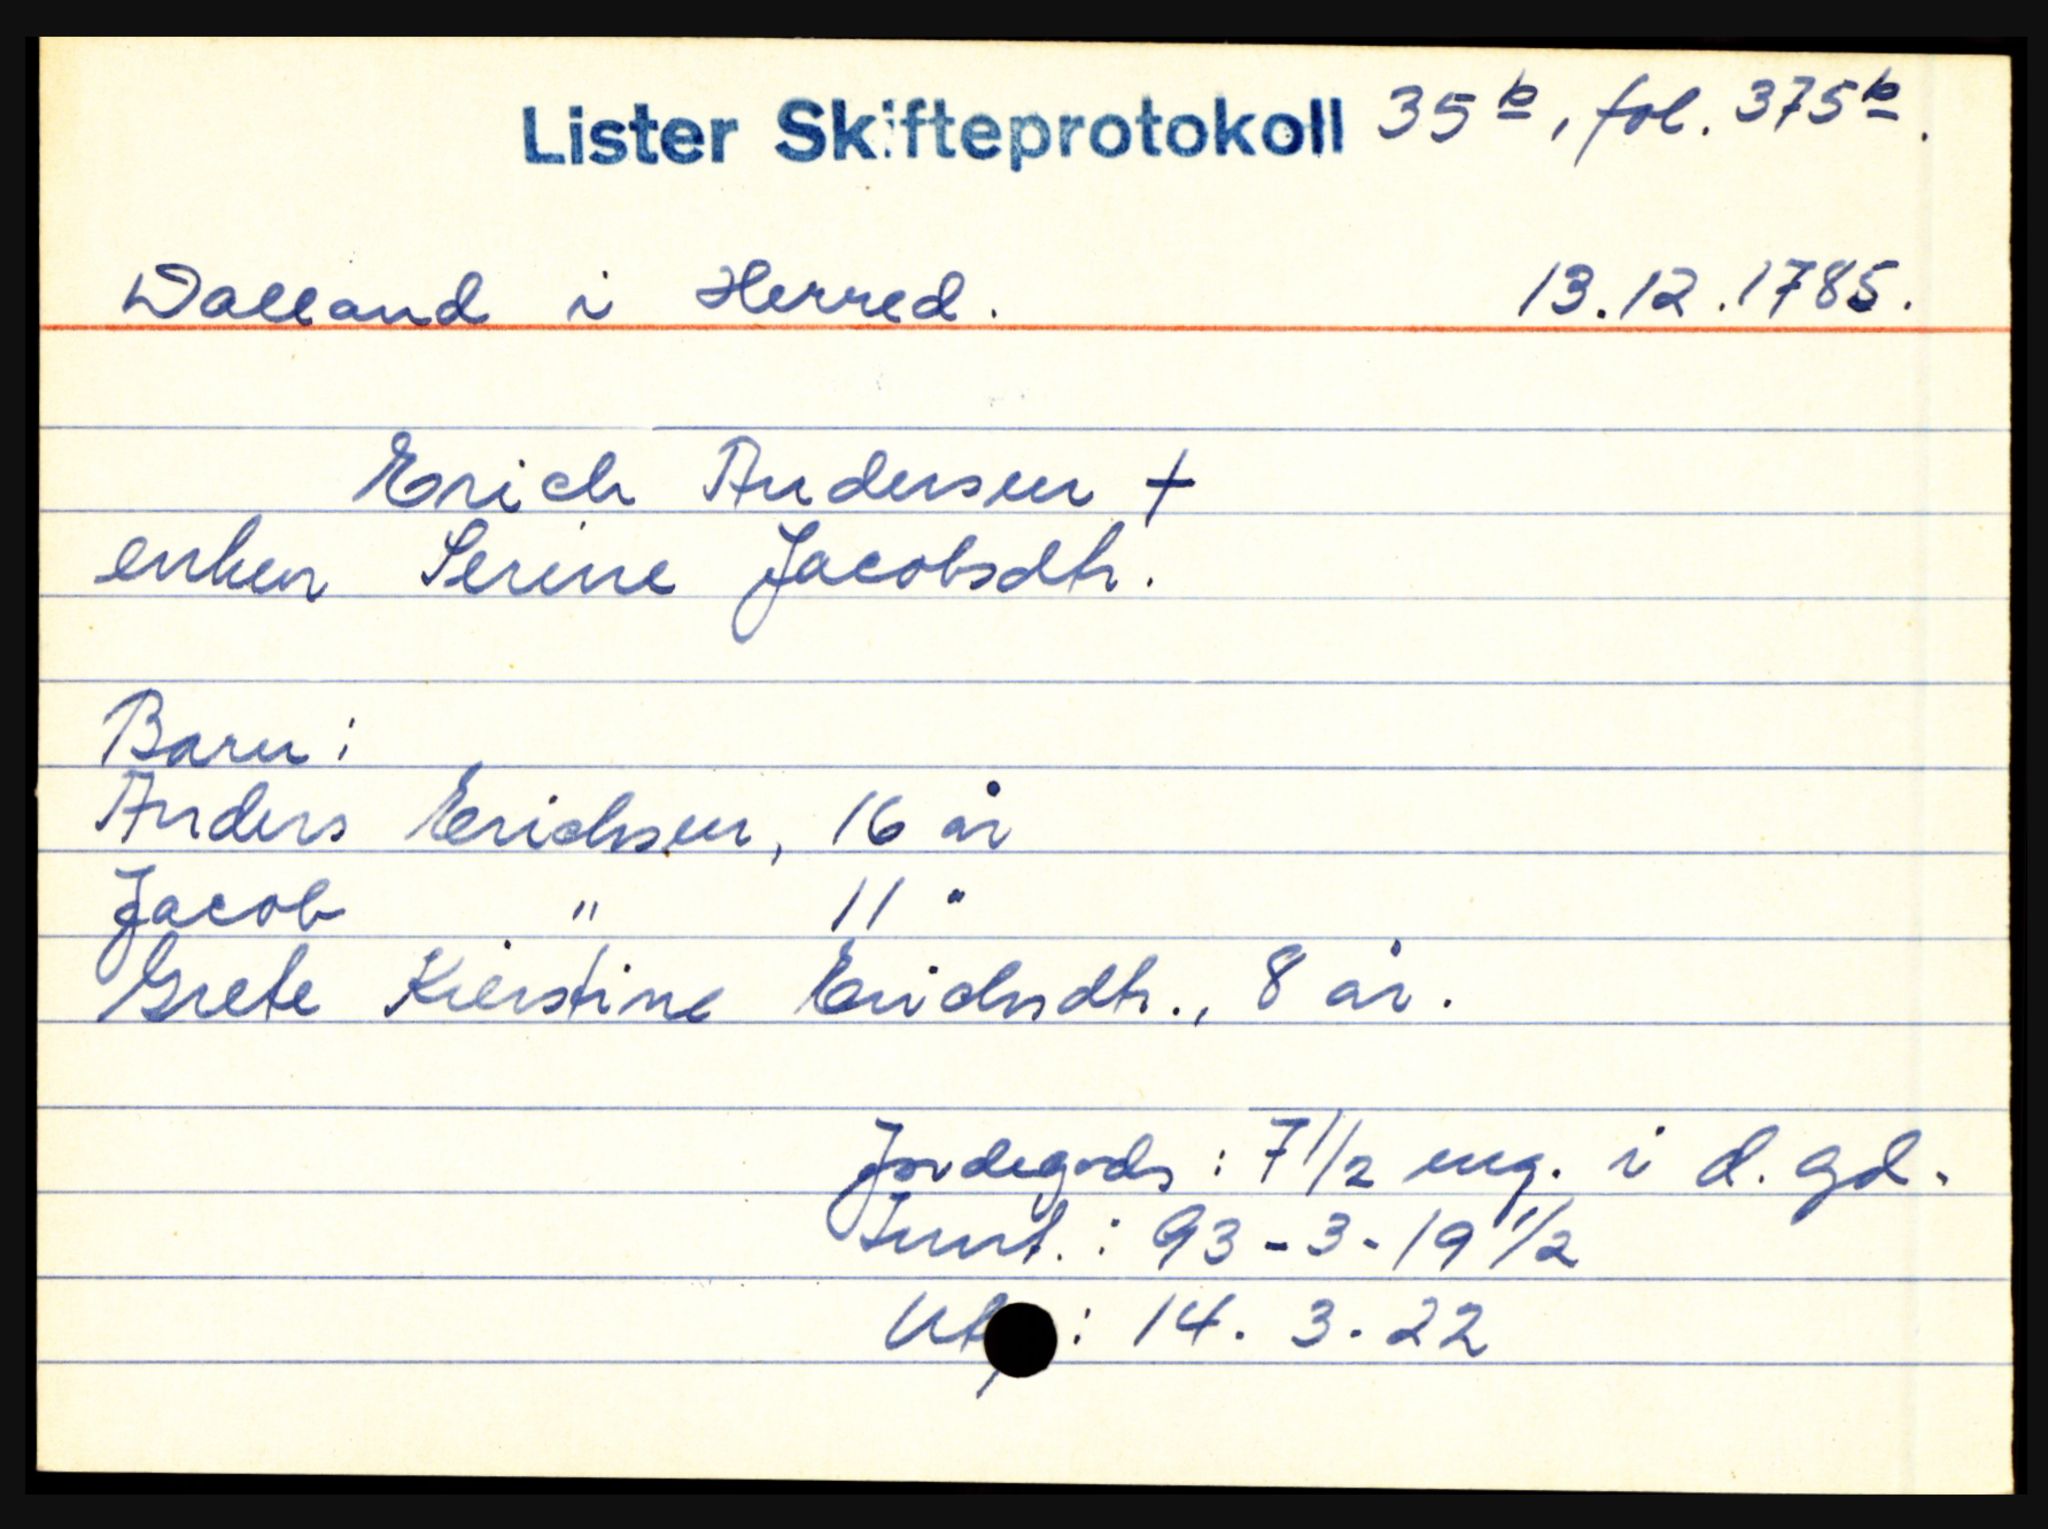 Lister Skifteprotokoll 35 b, fol. 375 b.
Dalland i Herred. 13.12.1785.
Erich Andersen +
enken Serine Jacobsdtr.
Barn:
Anders Erichsen, 16 år
Jacob " 11 "
Grete Kierstine Erichsdtr., 8 år.
Jordegods: 7 1/2 eng. i d. gd.
Innt.: 93-3-19 1/2
: 14. 3. 22